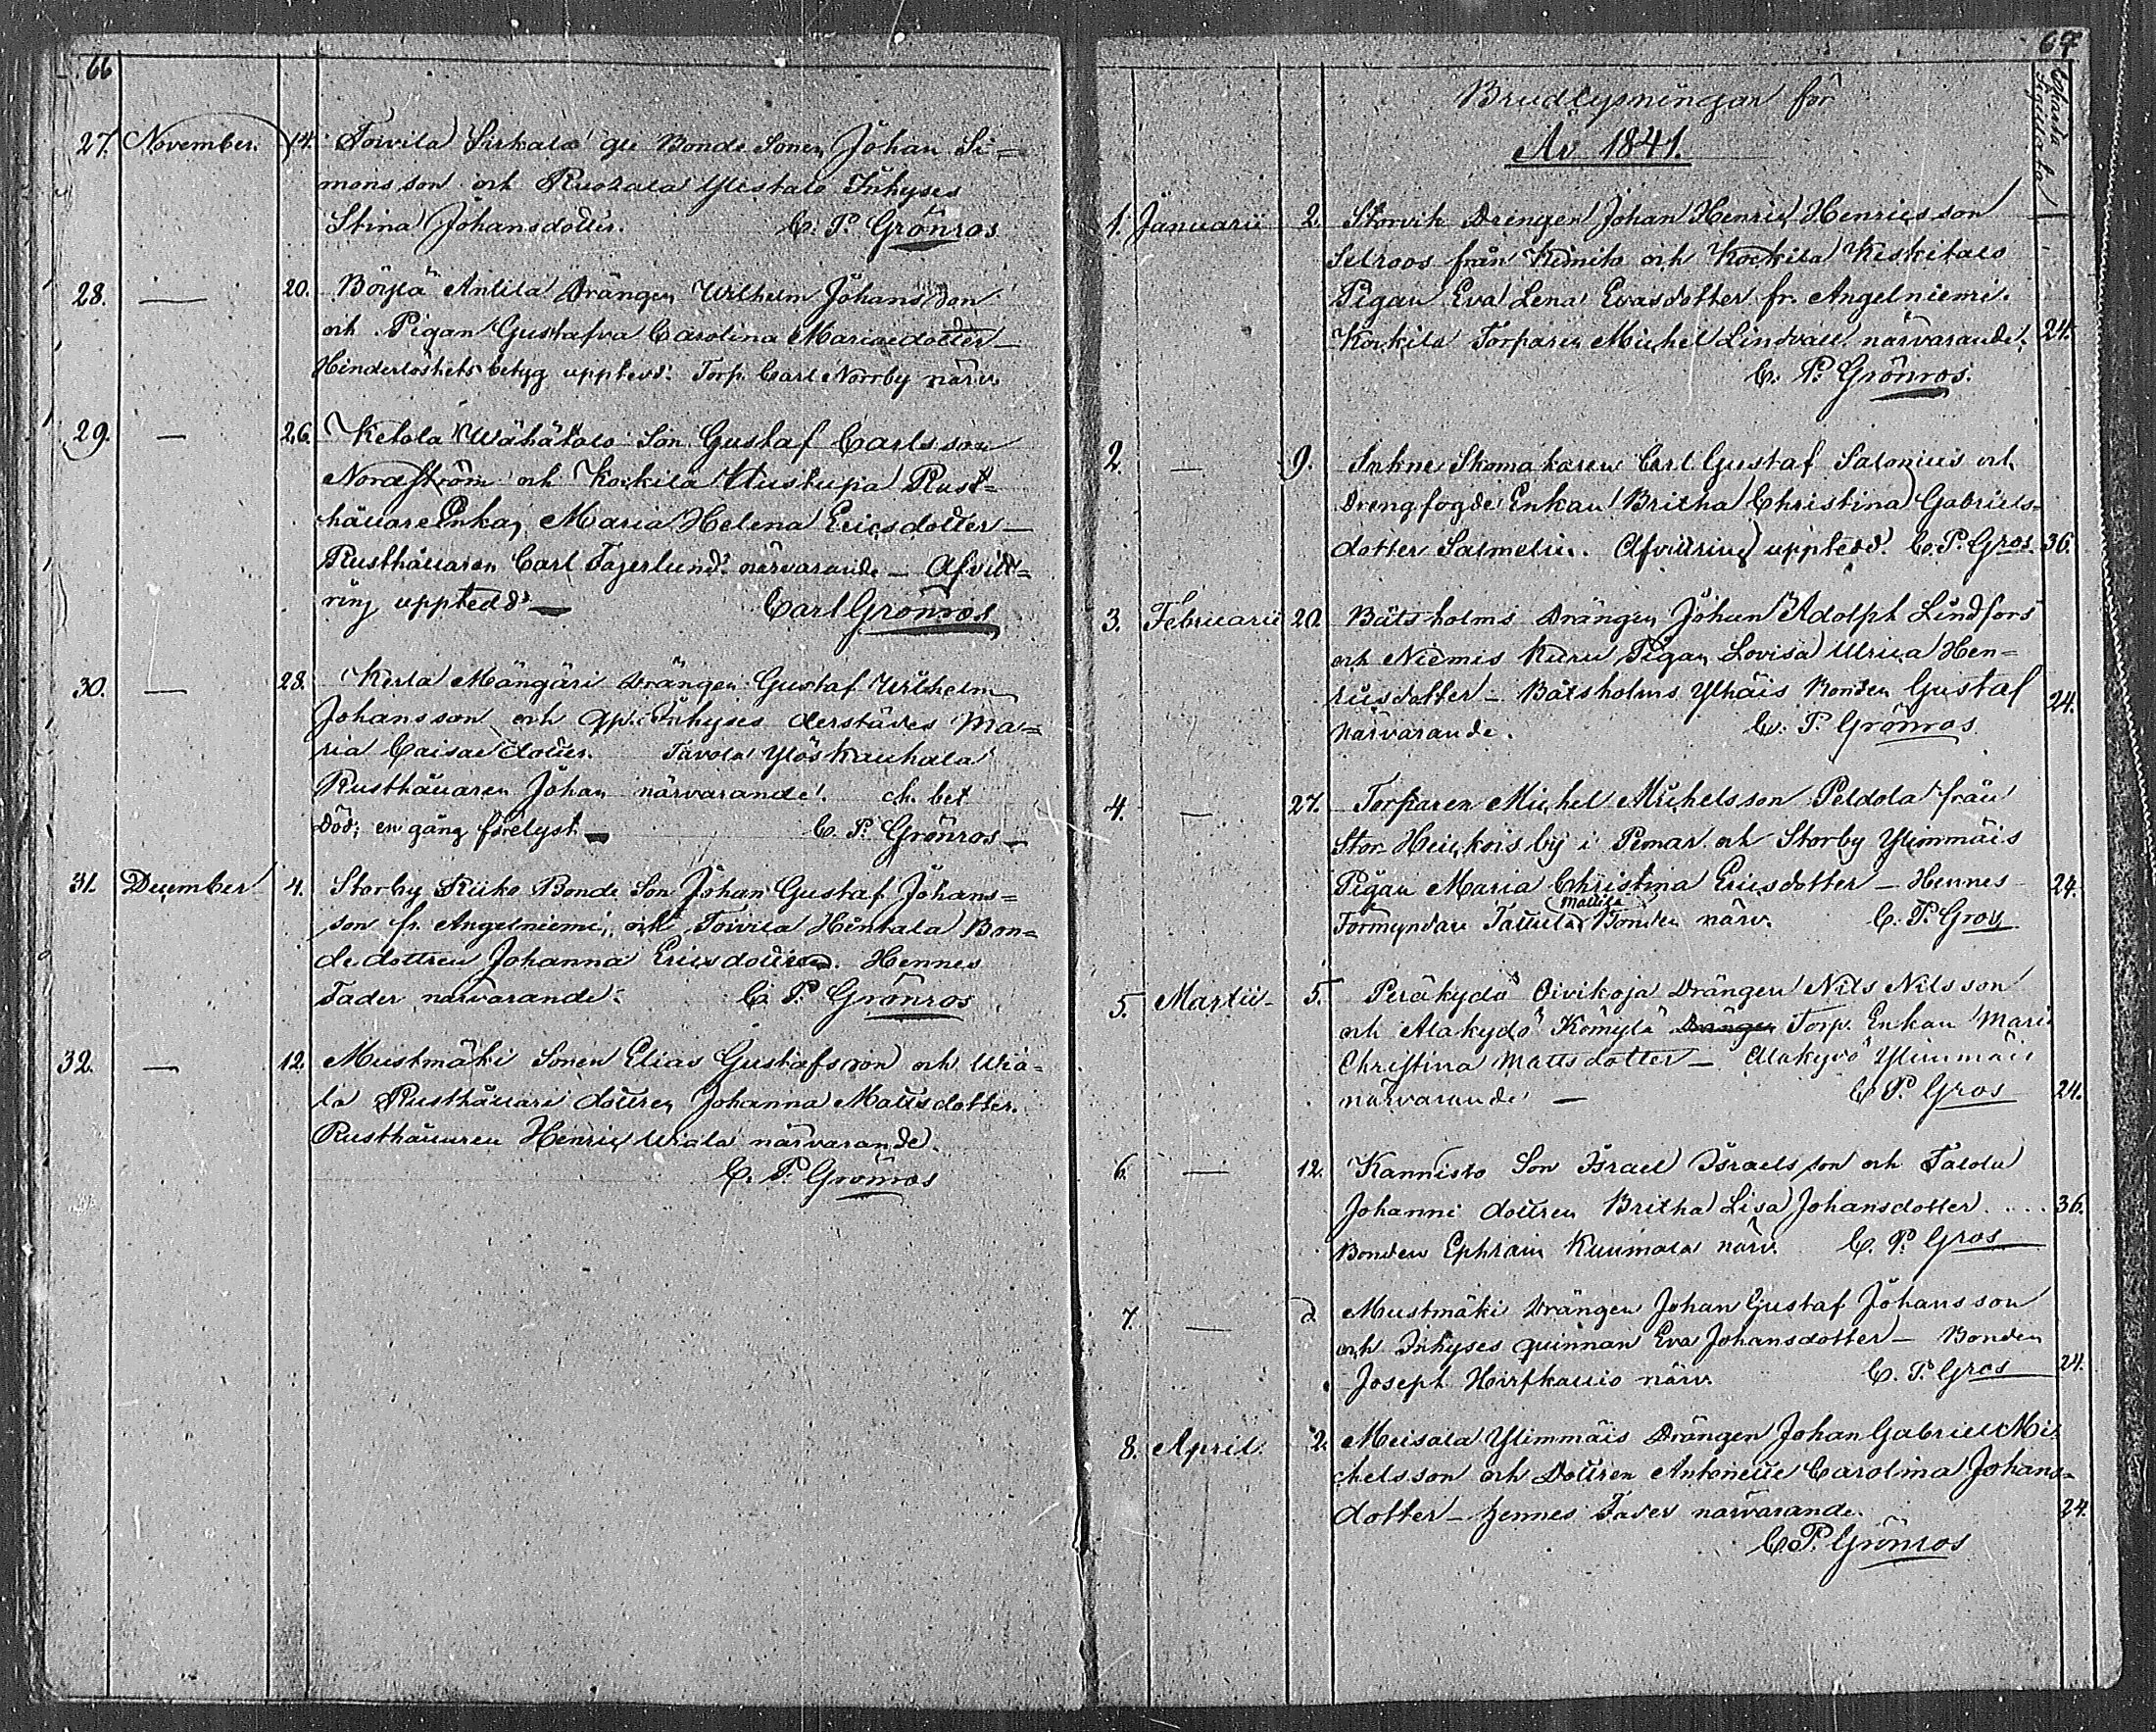 66
27. November. 14. Toivila Sirkala gle Bonde Sonen Johan Si=
mons son och Ruokala Ylistalo Inhyses
Stina Johansdotter. C. P. Grönros
28. — 20. Böylä Anttila Drängen Wilhelm Johansson
och Pigan Gustafva Carolina Mariaedotter —
Hinderlöshets betyg uppted. Torp. Carl Norrby närv.
29. — 26. Ketola Wähätalo Son Gustaf Carlsson
Nordström och Kockila Uustupa Rust=
hållare Enkan Maria Helena Ericsdotter —
Rusthållaren Carl Fagerlund närvarande — Afvitt=
ring upptedd — Carl Grönros
30. — 28. Kerla Mångäri Drängen Gustaf Wilhelm
Johansson och Inhyses derstädes Ma=
ria Caisaedotter. Tavola Yöskauhala
Rusthållaren Johan närvarande.
Död; en gång förelyst — C. P. Grönros —
31. December 4. Storby Riiko Bonde Son Johan Gustaf Johans=
son fr. Angelniemi, och Toivila Hintala Bon=
dedottren Johanna Ericsdotter. Hennes
Fader närvarande. C. P. Grönros
32. — 12. Mustmäki Sonen Elias Gustafsson och Wia=
la Rusthållare dottren Johanna Mattsdotter.
Rusthållaren Henric Wiala närvarande.
C. P. Grönros
67
Brudlysningar för
År 1841.
1. Januarii 2. Storvik Drengen Johan Henric Henricsson
Selroos från Kimito och Kockila Keskitalo
Pigan Eva Lena Evasdotter fr. Angelniemi.
Kockila Torparen Michel Lindvall närvarande. 24.
C. P. Grönros.
2. — 9. Sockne Skomakaren Carl Gustaf Salonius och
Drengfogde Enkan Britha Christina Gabriels=
dotter Salmelin. Afvittring upptedd. C. P. Gros 36.
3. Februarii 20 Båtsholms Drängen Johan Adolph Lindfors
och Niemis Kuru Pigan Lovisa Ulrica Hen=
ricsdotter — Båtsholms Ylhäis Bonden Gustaf 24.
närvarande. C. P. Grönros
4. — 27. Torparen Michel Michelsson Peldola från
Stor Heickois by i Pemar och Storby Ylimmäis
Pigan Maria Christina Ericsdotter — Hennes 24.
Mattila
Förmyndare Tattula Bonden närv. C. P. Gros
5. Martii 5. Peräkydö Oivikoja Drängen Nils Nilsson
och Alakydö Kömylä Drängen Torp. Enkan Maria
Christina Mattsdotter — Alakydö Ylimmäis
närvarande — C P. Gros 24.
6. — 12. Kannisto Son Israel Israelsson och Tatola
Johanni dottren Britha Lisa Johansdotter . . . . 36.
Bonden Ephraim Kuumala närv. C. P. Gros
7. — d Mustmäki Drängen Johan Gustaf Johansson
och Inhyses quinnan Eva Johansdotter — Bonden
Joseph Hoirfkallio närv. C. P. Gros 24.
8. April 2. Meisala Ylimmäis Drängen Johan Gabriel Mi=
chelsson och Dottren Antonette Carolina Johans=
dotter — hennes Fader närvarande. 24.
C. P. Grönros